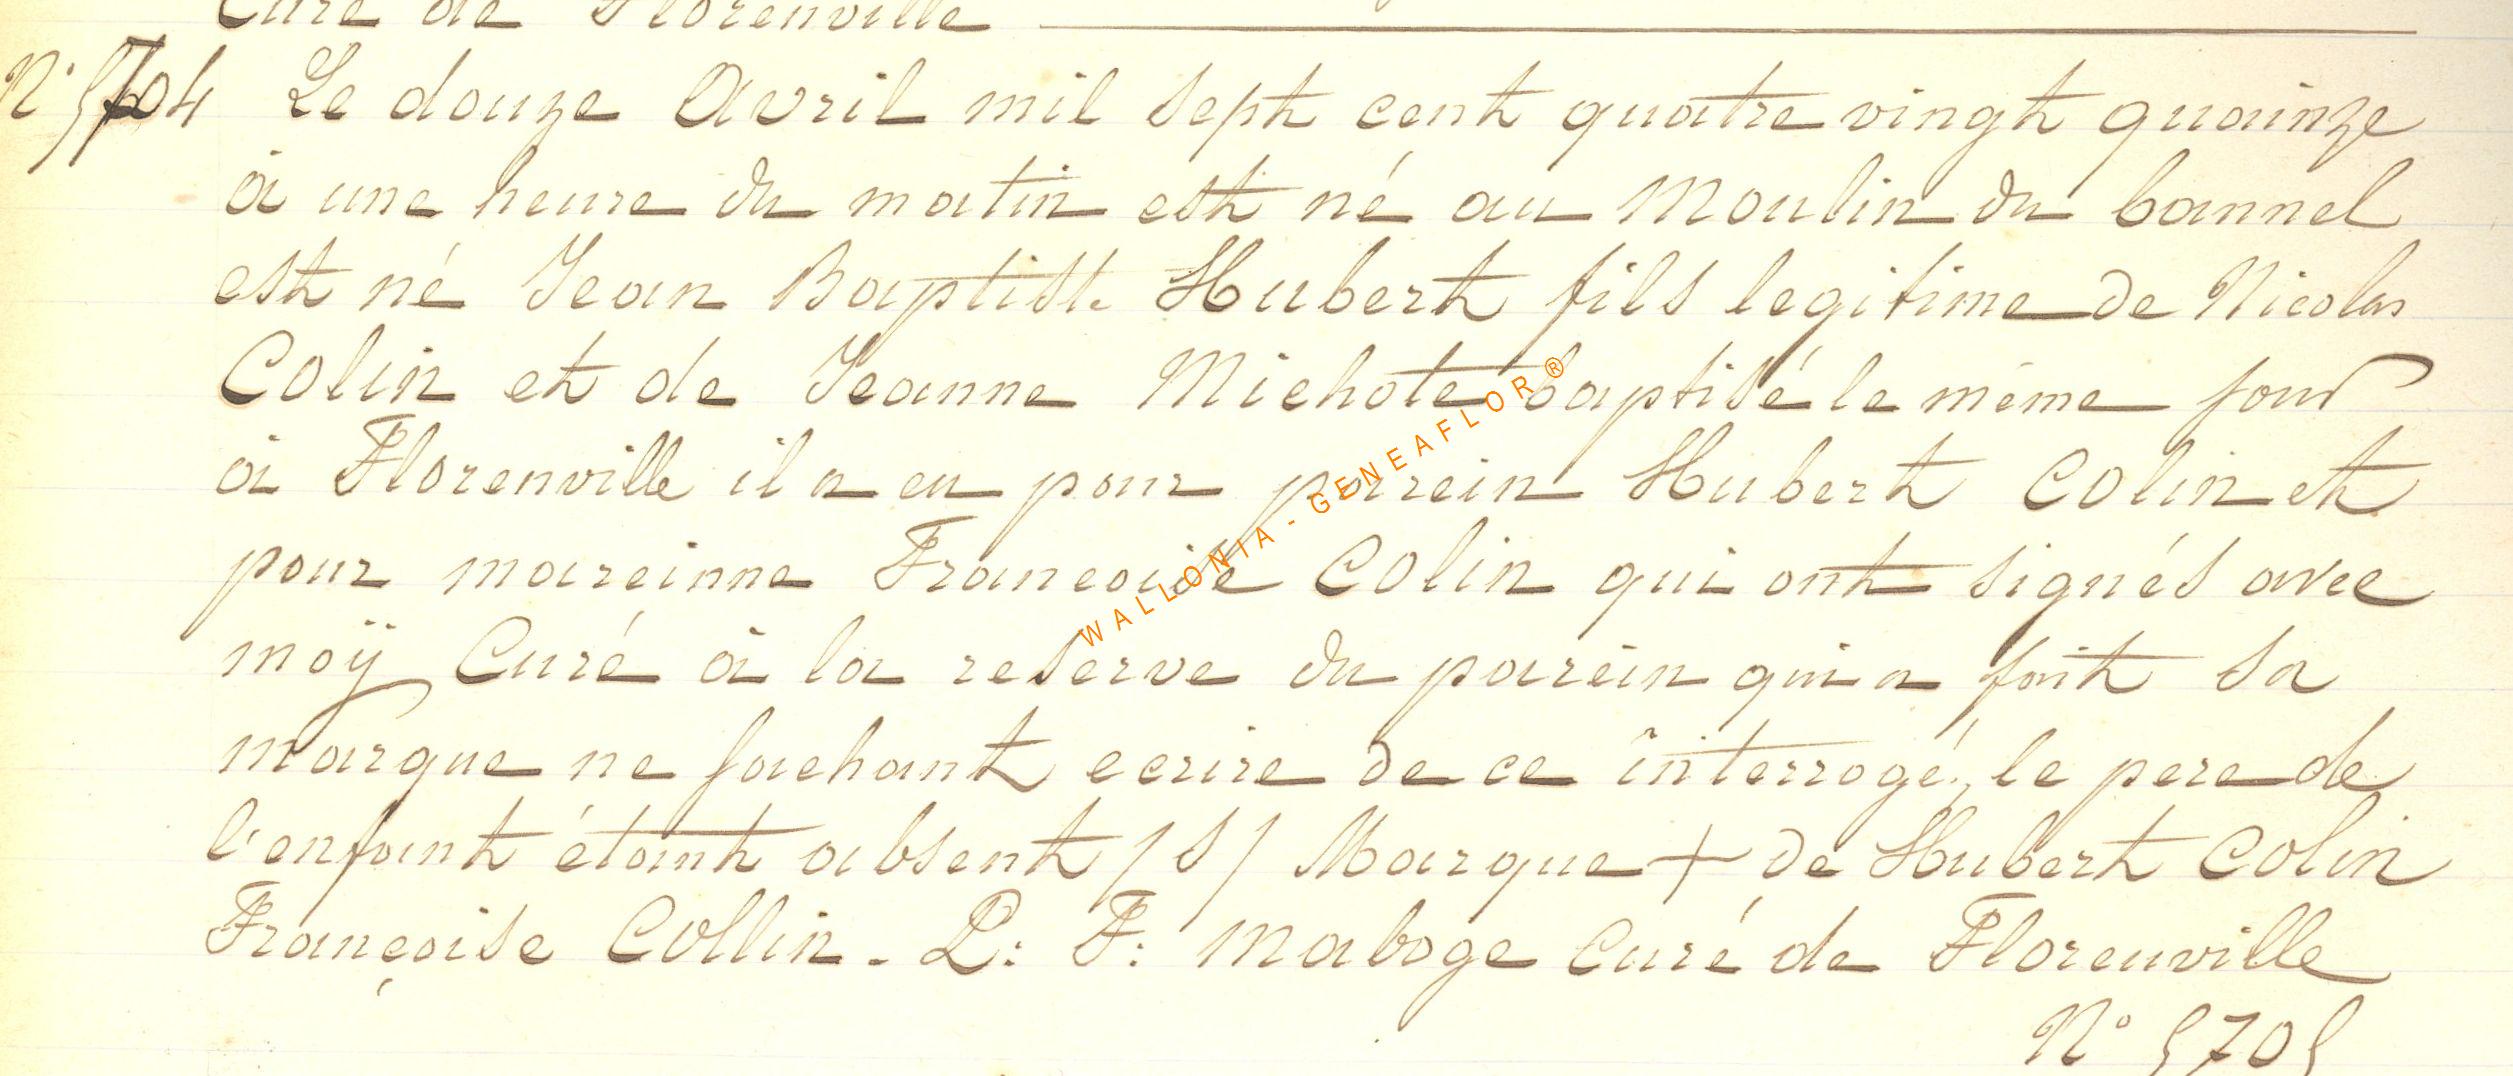 Curé de Florenville
N° 5704 Le douze Avril mil sept cent quatre vingt quainze
à une heure du matin est né au Moulin du bannel
est né Jean Baptiste Hubert fils legitime de Nicolas
Colin et de Jeanne Michote baptisé le même jour
à Florenville il a eu pour parein Hubert Colin et
pour mareinne Francoise Colin qui ont signés avec
moÿ Curé à la reserve du parein qui a fait sa
marque ne sachant ecrire de ce interrogé, le pere de
l'enfant étant absent /S/ Marque + de Hubert Colin
Françoise Collin. L: F: Maboge Curé de Florenville
N° 5705
WALLONIA - GENEAFLOR®